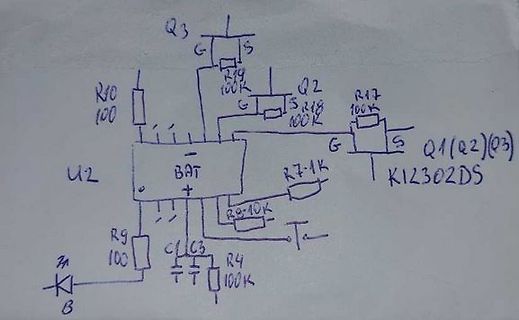 Q3
G S
R19
100K
Q2
G S
R18
100K
R17
100K
G S
Q1(Q2)(Q3)
KI2302DS
R10
100
U2
−
BAT
+
R7-1K
R8-10K
R9
100
C1 C3
R4
100K
B